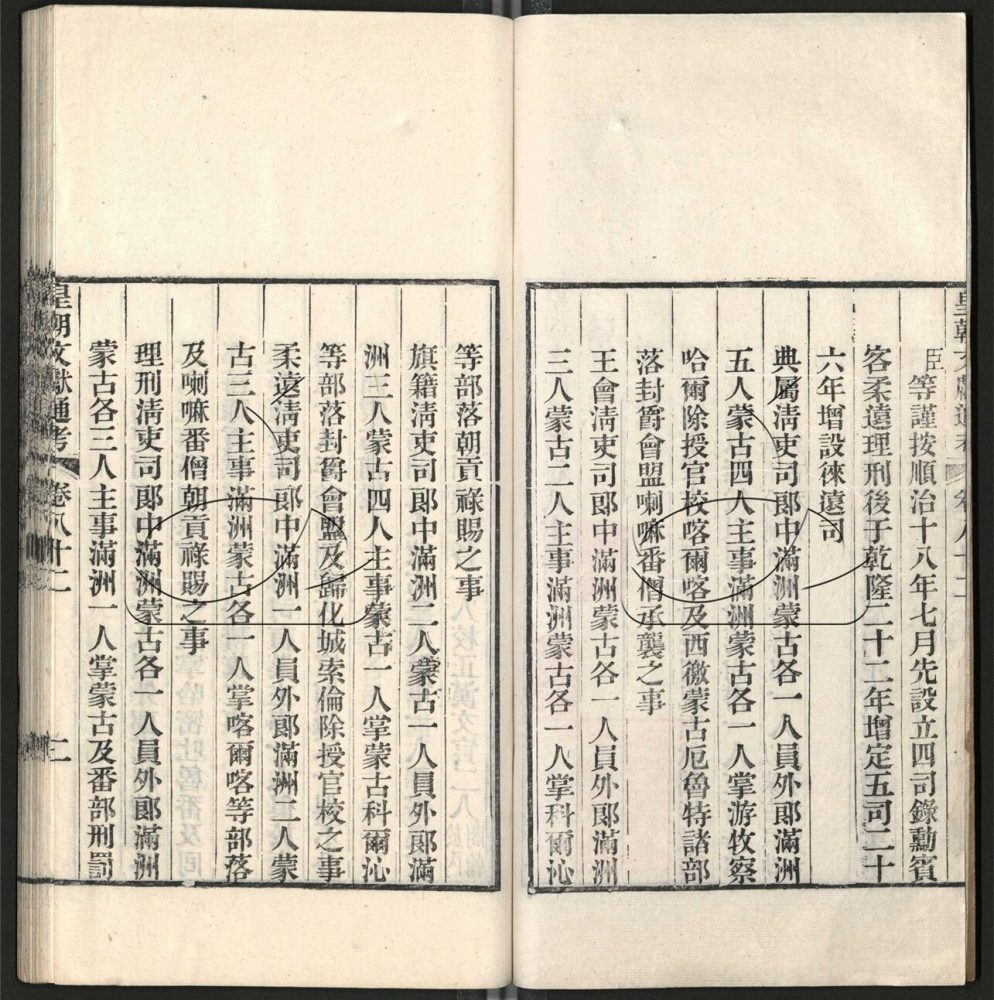 皇朝文獻通考 卷八十二
臣等謹按順治十八年七月先設立四司錄勳賓
客柔遠理刑後于乾隆二十二年增定五司二十
六年增設徠遠司
典屬淸吏司郞中滿洲蒙古各一人員外郞滿洲
五人蒙古四人主事滿洲蒙古各一人掌游牧察
哈爾除授官校喀爾喀及西徼蒙古厄魯特諸部
落封爵會盟喇嘛番僧承襲之事
王會淸吏司郞中滿洲蒙古各一人員外郞滿洲
三人蒙古二人主事滿洲蒙古各一人掌科爾沁
等部落朝貢祿賜之事
旗籍淸吏司郞中滿洲二人蒙古一人員外郞滿
洲三人蒙古四人主事蒙古一人掌蒙古科爾沁
等部落封爵會盟及歸化城索倫除授官校之事
柔遠淸吏司郞中滿洲一人員外郞滿洲二人蒙
古三人主事滿洲蒙古各一人掌喀爾喀等部落
及喇嘛番僧朝貢祿賜之事
理刑淸吏司郞中滿洲蒙古各一人員外郞滿洲
蒙古各三人主事滿洲一人掌蒙古及番部刑罰
皇朝文獻通考 卷八十二 二